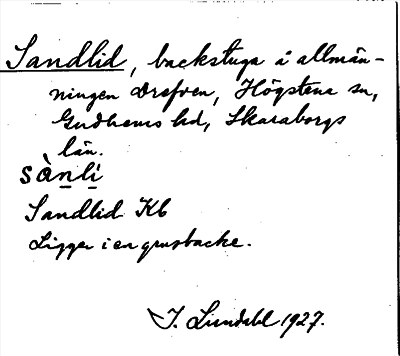 Sandlid, backstuga å allmän-
ningen Drefven, Högstena sn,
Gudhems hd, Skaraborgs
län.
sànlí
Sandlid Kb
Ligger i en grusbacke.
I. Lundahl 1927.